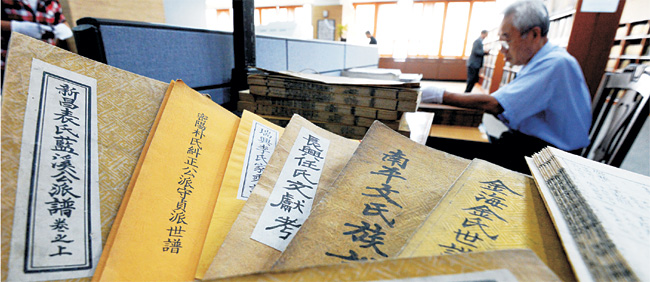 新昌表氏藍溪公派譜 卷之上
密陽朴氏糾正公派守貞派世譜
李氏家
長興任氏文獻考
南平文氏族
金海金氏世譜